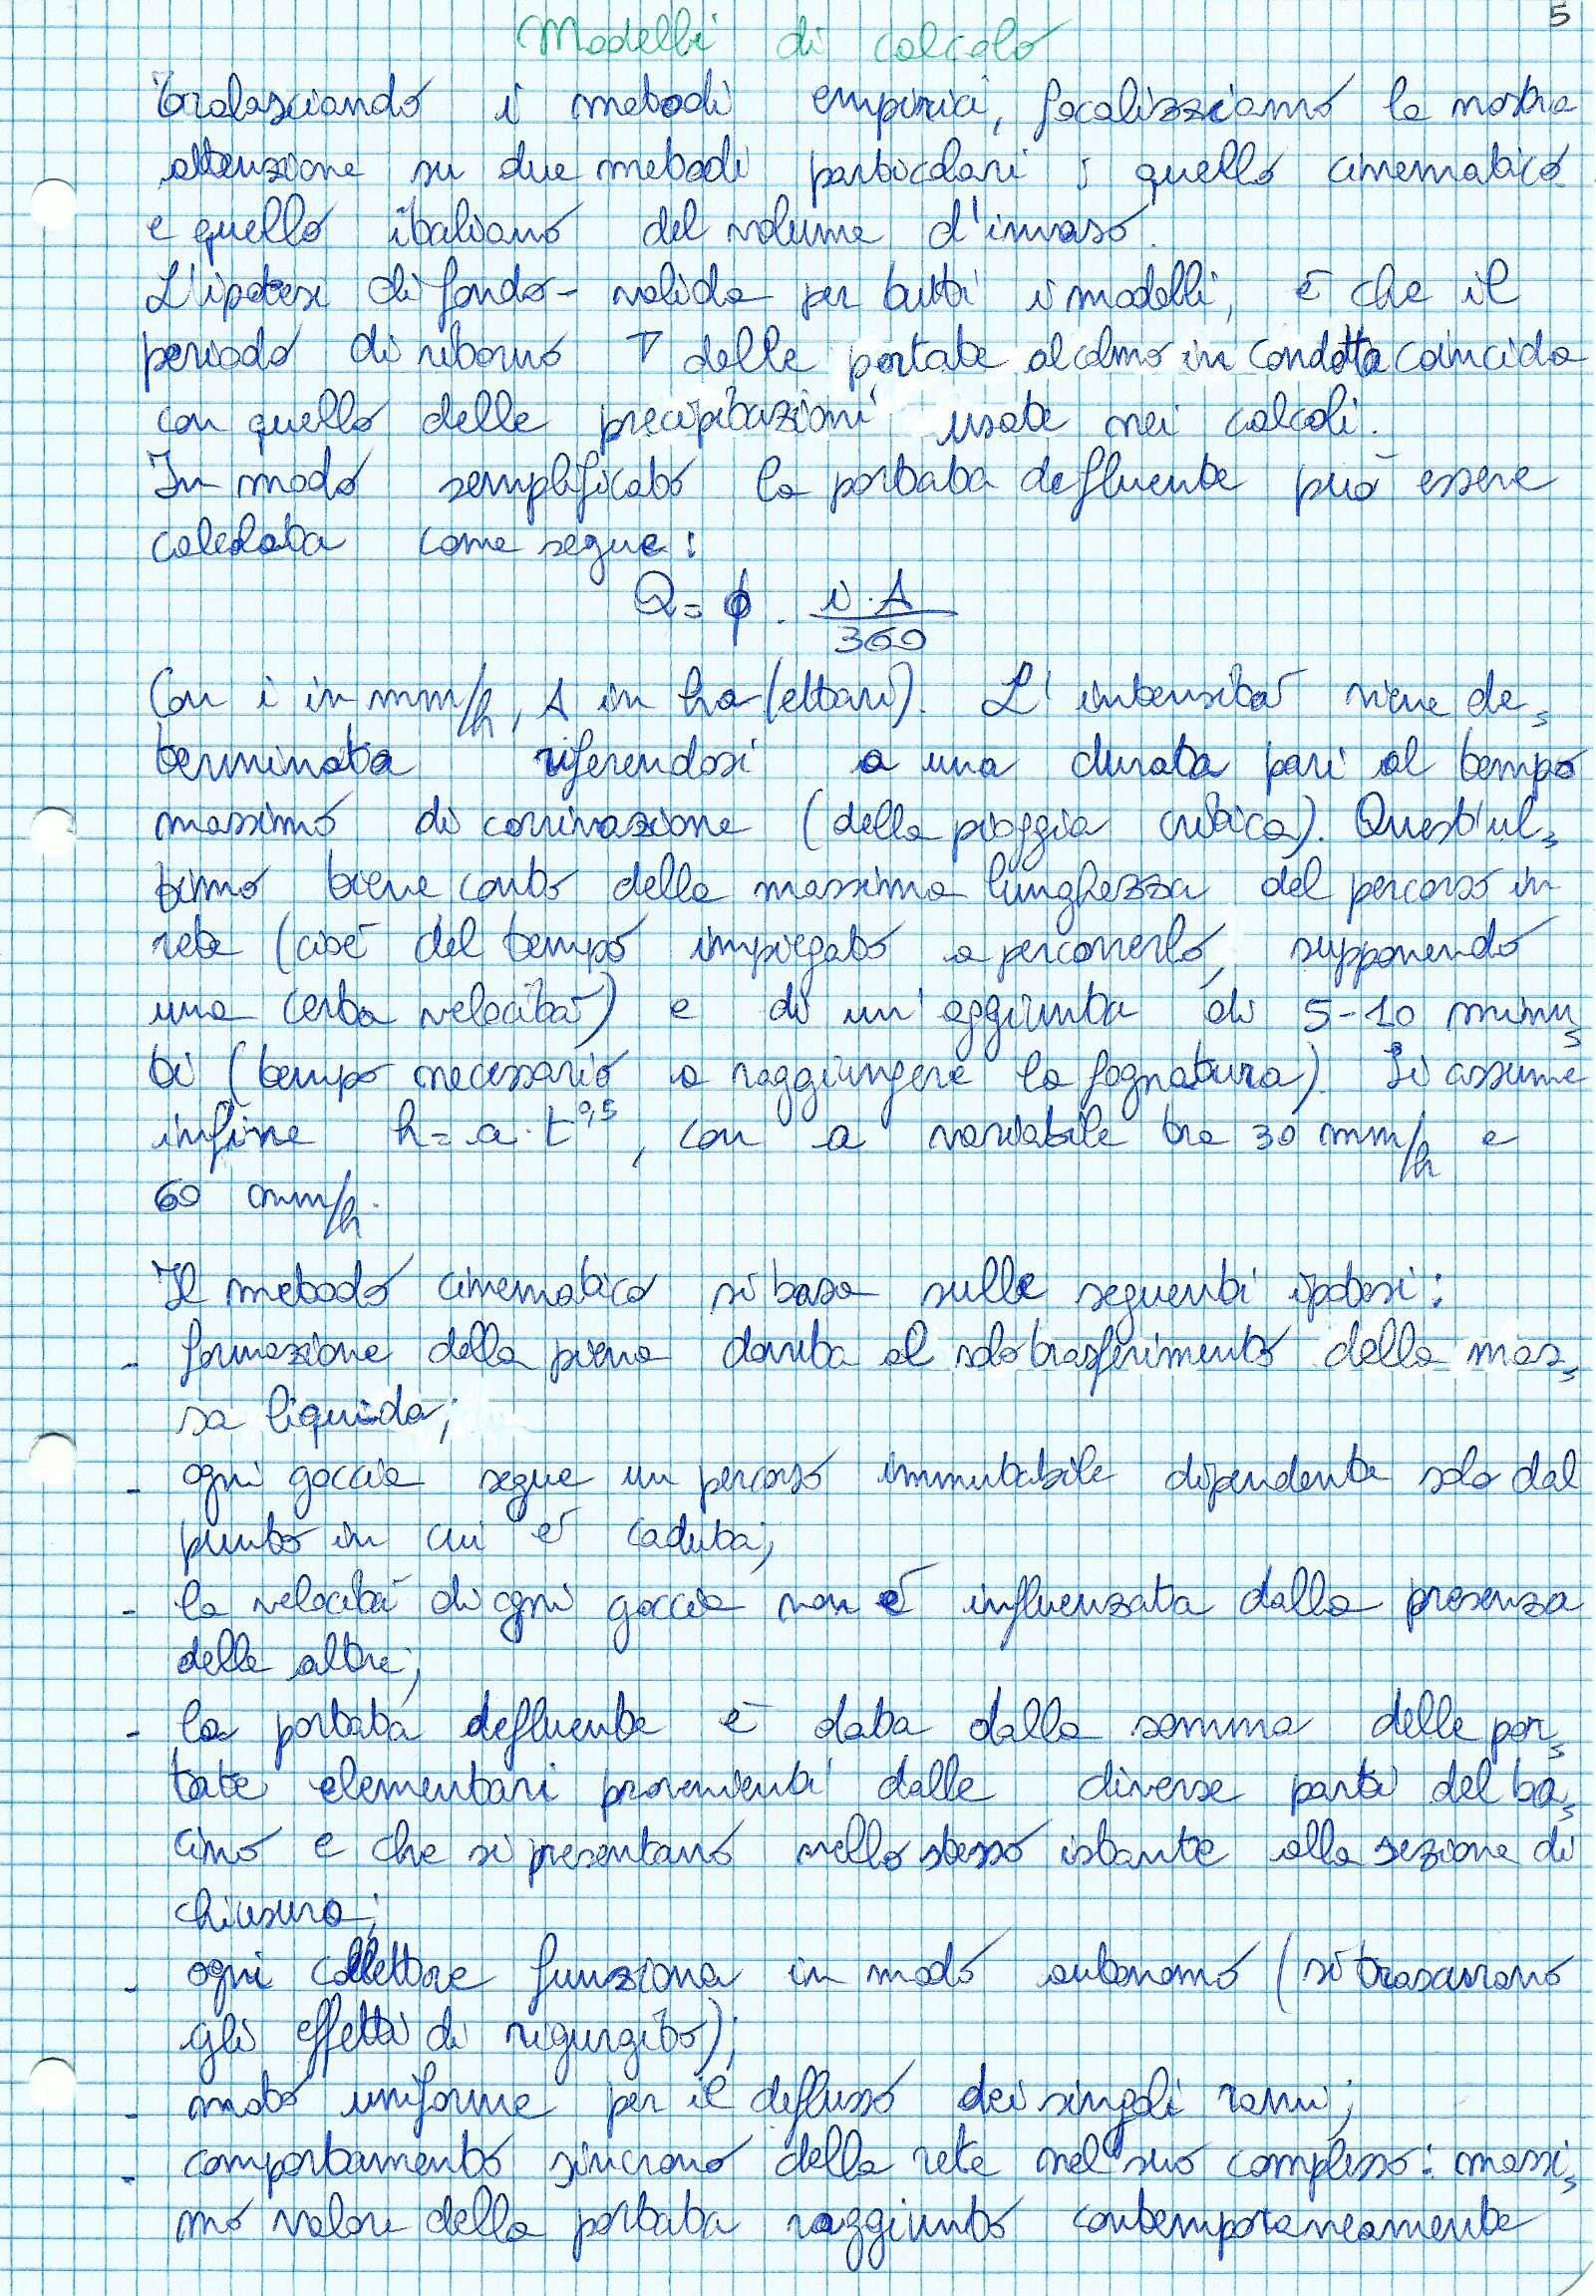 5
Modelli di calcolo
Tralasciando i metodi empirici, focalizziamo la nostra
attenzione su due metodi particolari: quello cinematico
e quello italiano del volume d'invaso.
L'ipotesi di fondo - valida per tutti i modelli, è che il
periodo di ritorno T delle portate al colmo in condotta coincida
con quello delle precipitazioni usate nei calcoli.
In modo semplificato la portata defluente può essere
calcolata come segue:
Q = ϕ · i·A / 360
Con i in mm/h, A in ha (ettari). L'intensità viene de=
terminata riferendosi a una durata pari al tempo
massimo di corrivazione (della pioggia critica). Quest'ul=
timo tiene conto della massima lunghezza del percorso in
rete (cioè del tempo impiegato a percorrerlo, supponendo
una certa velocità) e di un'aggiunta di 5-10 minu=
ti (tempo necessario a raggiungere la fognatura). Si assume
infine h = a·t^0,5, con a variabile tra 30 mm/h e
60 mm/h.
Il metodo cinematico si basa sulle seguenti ipotesi:
- formazione della piena dovuta al solo trasferimento della mas=
sa liquida;
- ogni goccia segue un percorso immutabile dipendente solo dal
punto in cui è caduta;
- la velocità di ogni goccia non è influenzata dalla presenza
delle altre;
- la portata defluente è data dalla somma delle por=
tate elementari provenienti dalle diverse parti del ba=
cino e che si presentano nello stesso istante alla sezione di
chiusura;
- ogni collettore funziona in modo autonomo (si trascurano
gli effetti di rigurgito);
- moto uniforme per il deflusso dei singoli rami;
- comportamento sincrono della rete nel suo complesso: massi=
mo valore della portata raggiunto contemporaneamente